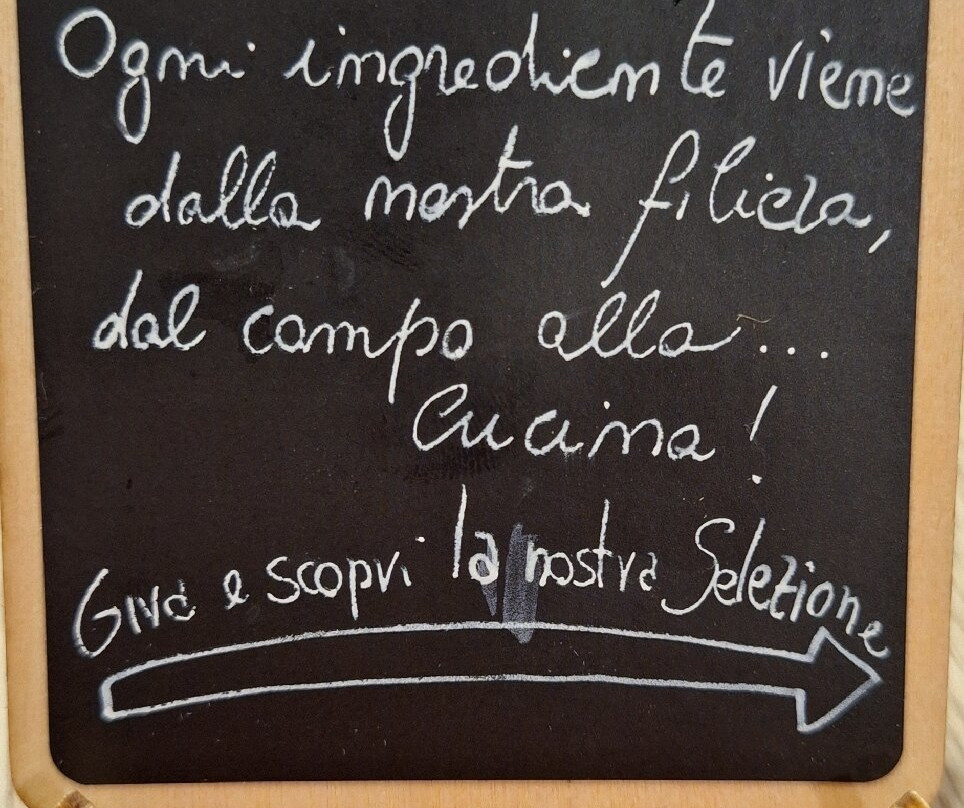 Ogni ingrediente viene
dalla nostra filiera,
dal campo alla...
Cucina!
Gira e scopri la nostra Selezione